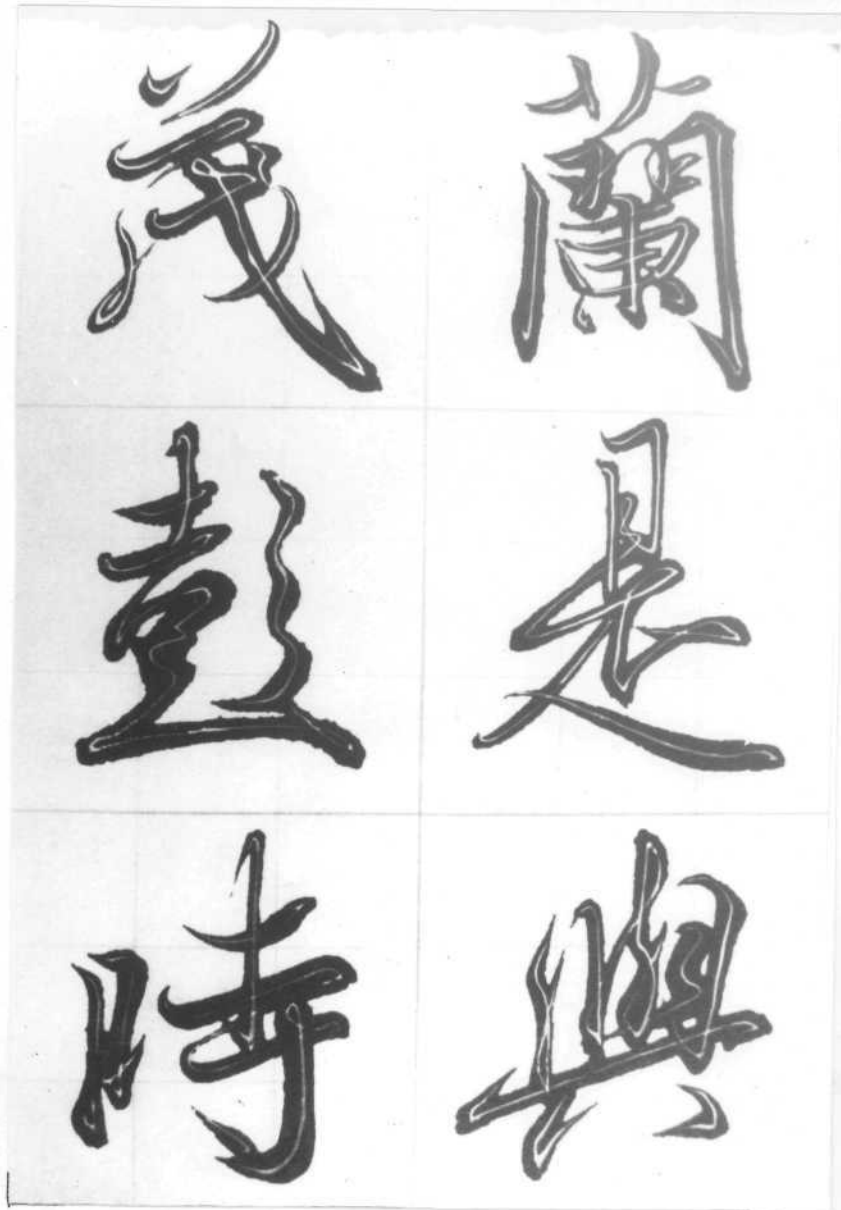 蘭是興
茂彭時